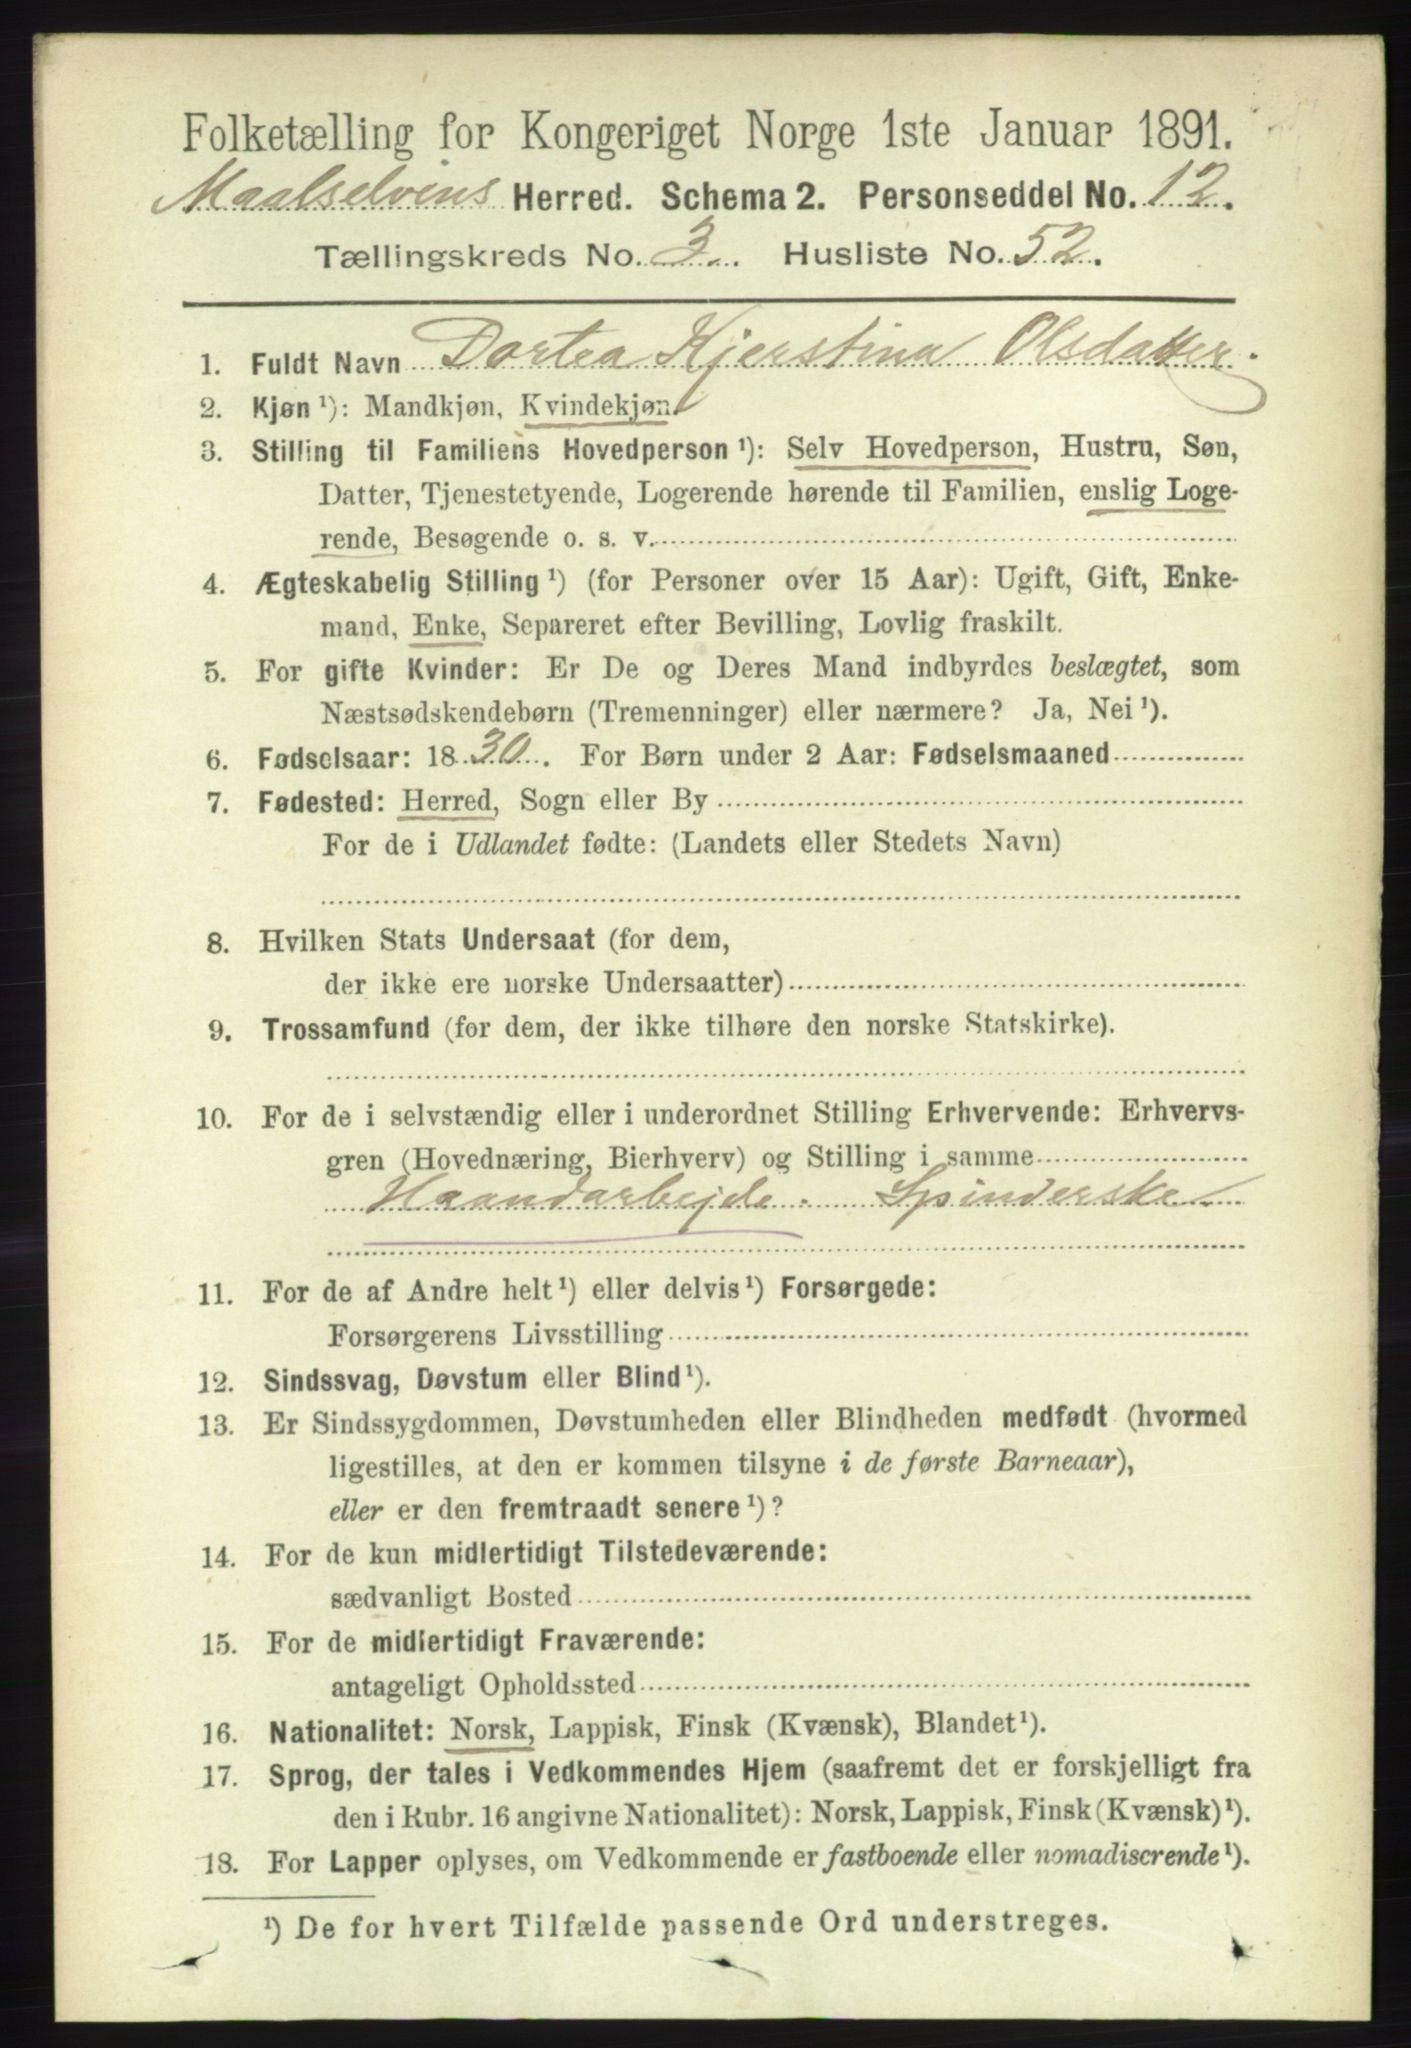 Folketælling for Kongeriget Norge 1ste Januar 1891.
Maalselvens Herred. Schema 2. Personseddel No. 12.
Tællingskreds No. 3. Husliste No. 52.
1. Fuldt Navn Dortea Kjerstina Olsdatter.
2. Kjøn ¹): Mandkjøn, Kvindekjøn.
3. Stilling til Familiens Hovedperson ¹): Selv Hovedperson, Hustru, Søn,
Datter, Tjenestetyende, Logerende hørende til Familien, enslig Loge-
rende, Besøgende o. s. v.
4. Ægteskabelig Stilling ¹) (for Personer over 15 Aar): Ugift, Gift, Enke-
mand, Enke, Separeret efter Bevilling, Lovlig fraskilt.
5. For gifte Kvinder: Er De og Deres Mand indbyrdes beslægtet, som
Næstsødskendebørn (Tremenninger) eller nærmere? Ja, Nei ¹).
6. Fødselsaar: 1830. For Børn under 2 Aar: Fødselsmaaned
7. Fødested: Herred, Sogn eller By
For de i Udlandet fødte: (Landets eller Stedets Navn)
8. Hvilken Stats Undersaat (for dem,
der ikke ere norske Undersaatter)
9. Trossamfund (for dem, der ikke tilhøre den norske Statskirke).
10. For de i selvstændig eller i underordnet Stilling Erhvervende: Erhvervs-
gren (Hovednæring, Bierhverv) og Stilling i samme
Haandarbejde. Spinderske.
11. For de af Andre helt ¹) eller delvis ¹) Forsørgede:
Forsørgerens Livsstilling
12. Sindssvag, Døvstum eller Blind ¹).
13. Er Sindssygdommen, Døvstumheden eller Blindheden medfødt (hvormed
ligestilles, at den er kommen tilsyne i de første Barneaar),
eller er den fremtraadt senere ¹)?
14. For de kun midlertidigt Tilstedeværende:
sædvanligt Bosted
15. For de midlertidigt Fraværende:
antageligt Opholdssted
16. Nationalitet: Norsk, Lappisk, Finsk (Kvænsk), Blandet ¹).
17. Sprog, der tales i Vedkommendes Hjem (saafremt det er forskjelligt fra
den i Rubr. 16 angivne Nationalitet): Norsk, Lappisk, Finsk (Kvænsk) ¹).
18. For Lapper oplyses, om Vedkommende er fastboende eller nomadiserende ¹).
¹) De for hvert Tilfælde passende Ord understreges.